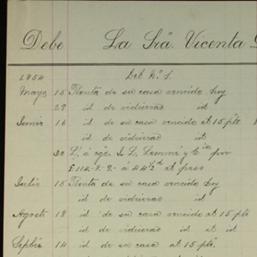 Debe La Srã. Vicenta
1854 Deb Nº. 1.
Mayo 15 Renta de su casa vencida hoy
29 id de vidrieras id
Junio 16 id de su casa vencido at 15 pte
id de vidrieras id
30 L/ á cgo. J. L. y Cia por
£114.. á 44½ d at peso
Julio 15 Renta de su casa vencido hoy
id de vidrieras id
Agosto 18 id de su casa vencido at 15 pte.
id de vidrieras id at id
Septbre 14 id de su casa at 15 pte.